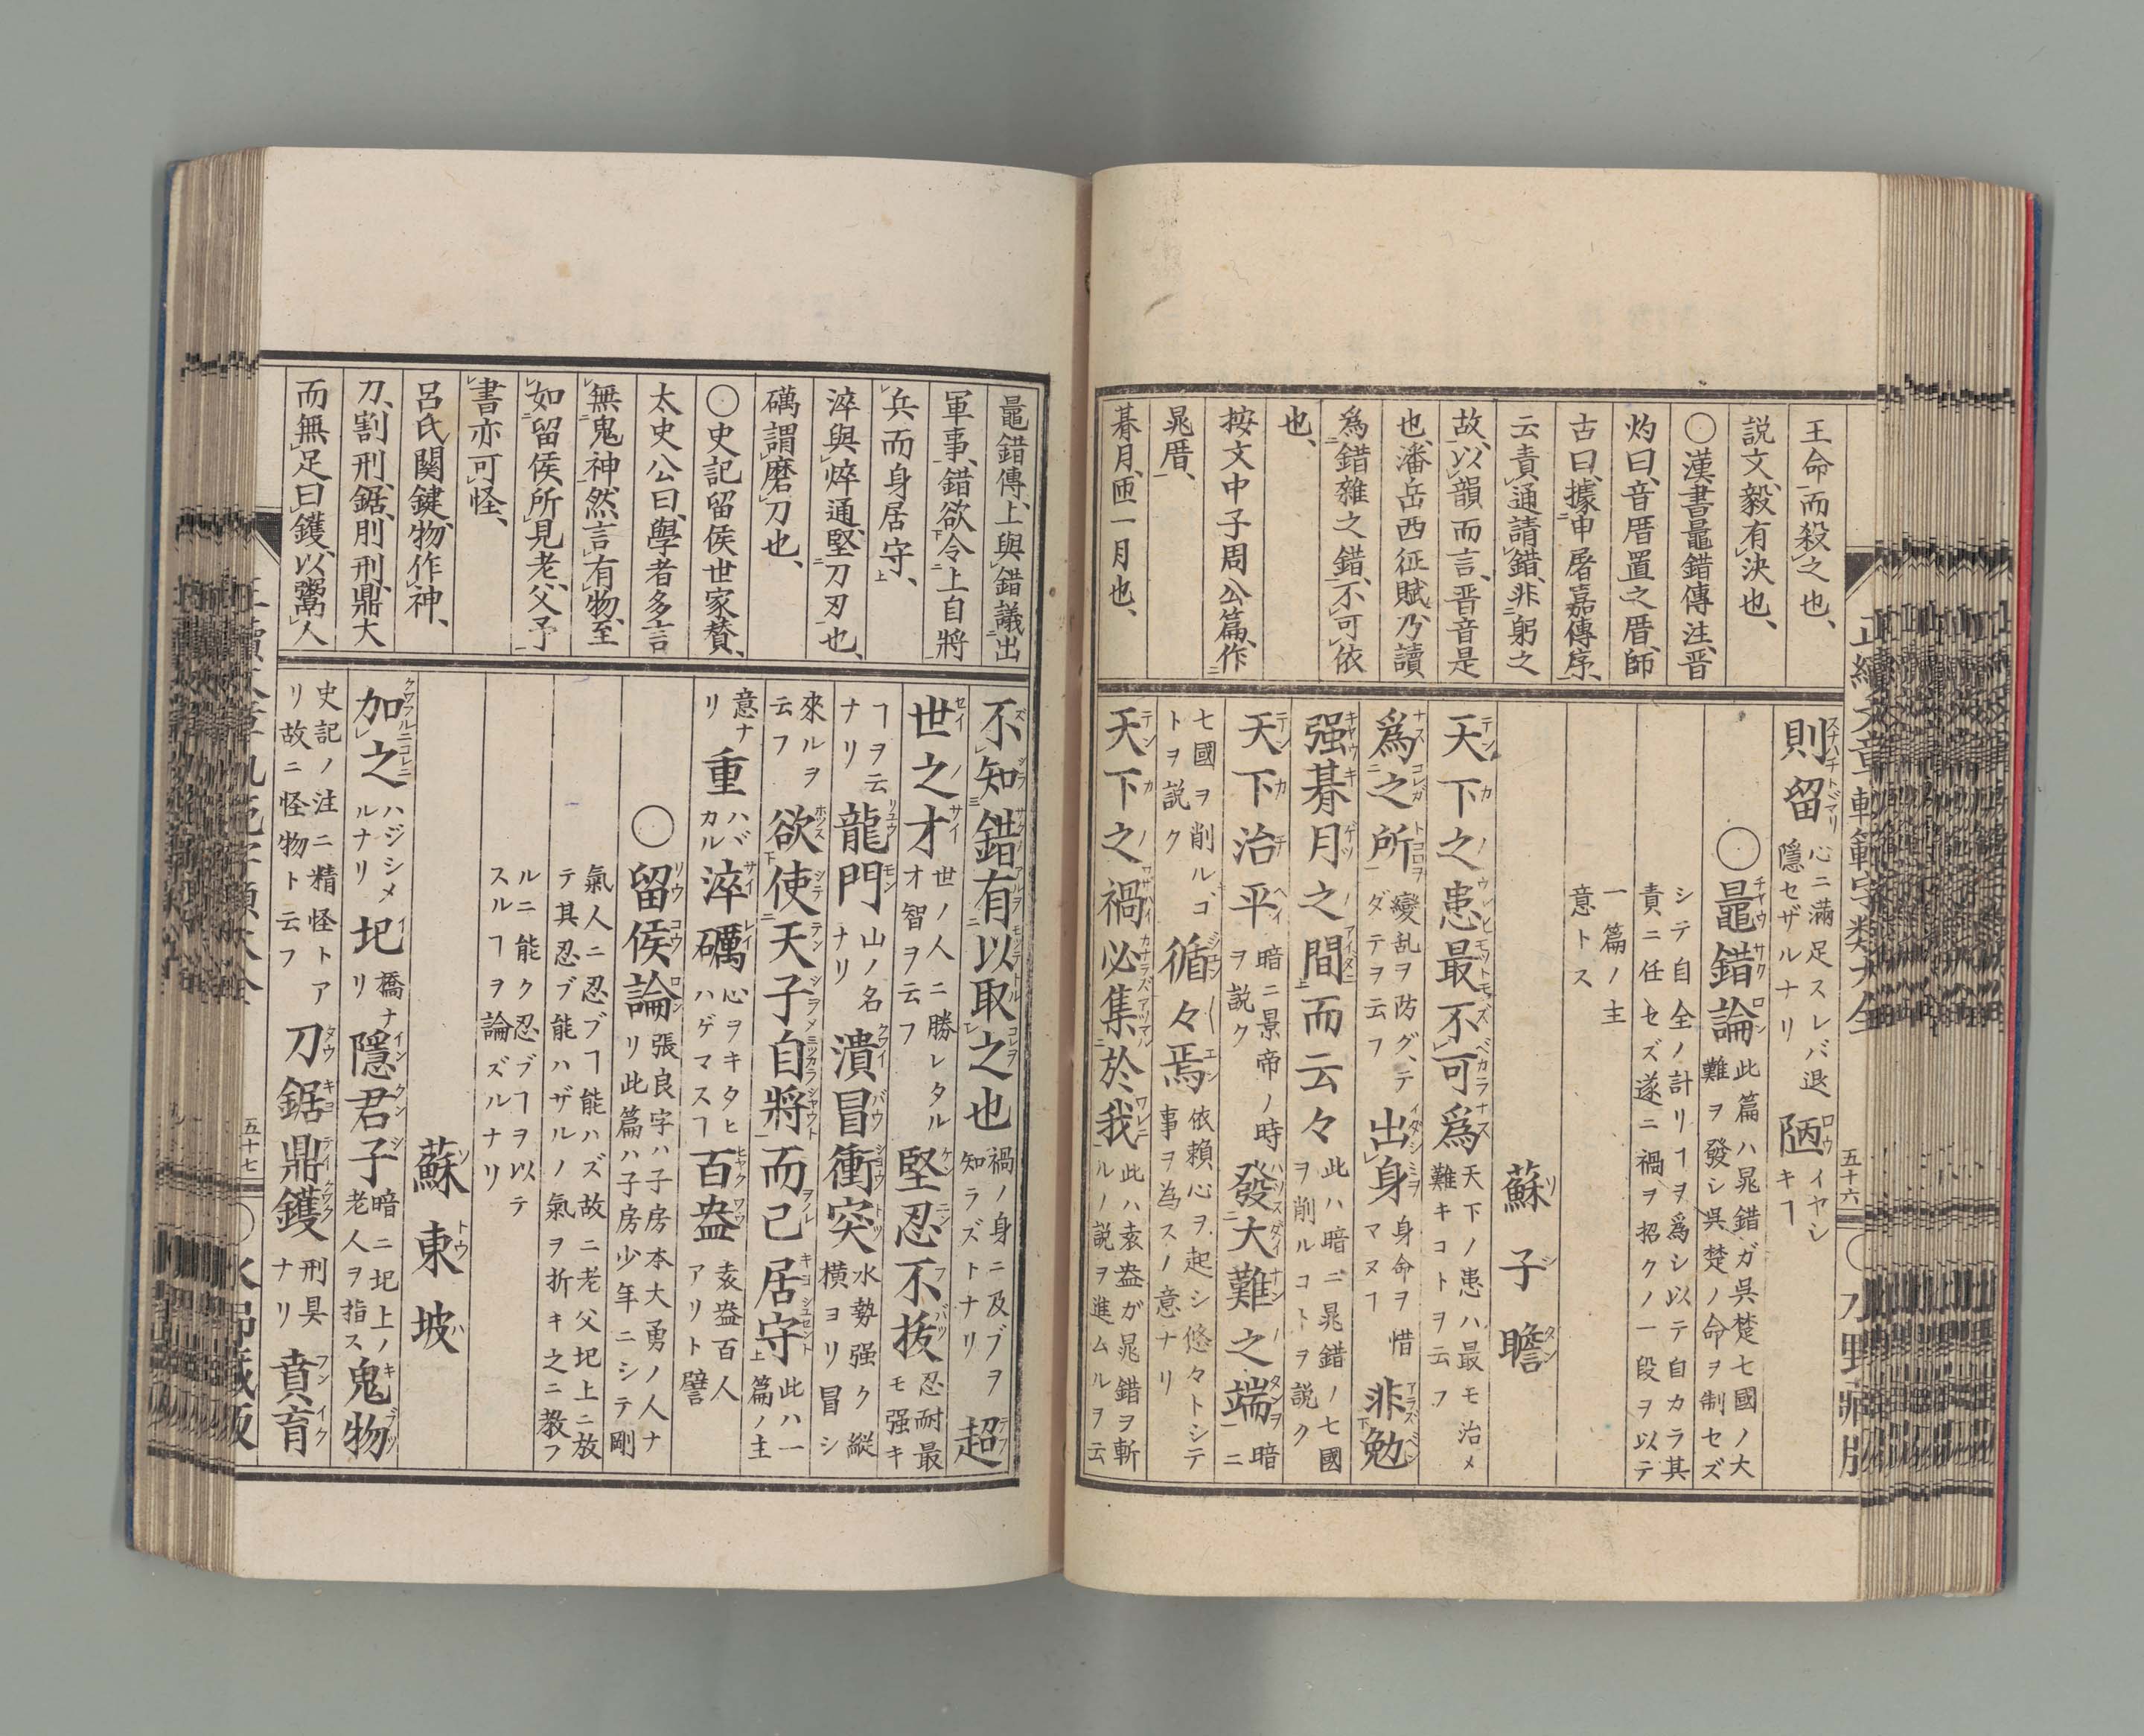 王命而殺之也、
説文、毅、有決也、
〇漢書鼂錯傳注、晋
灼曰、音厝置之厝、師
古曰、據申屠嘉傳序、
云責通請錯、非躬之
故、以韻而言、晋音是
也、潘岳西征賦、乃讀
爲錯雜之錯、不可依
也、
按文中子周公篇、作
晁厝、
朞月、匝一月也、
則留 心ニ滿足スレバ退隱セザルナリ 陋 イヤシキヿ
〇鼂錯論 此篇ハ晁錯ガ呉楚七國ノ大難ヲ發シ呉楚ノ命ヲ制セズ
シテ自全ノ計リヿヲ爲シ以テ自カラ其責ニ任セズ遂ニ禍ヲ招クノ一段ヲ以テ
一篇ノ主意トス
蘇子瞻
天下之患最不可爲 天下ノ患ハ最モ治メ難キコトヲ云フ
爲之所 變乱ヲ防グ、テダテヲ云フ 出身 身命ヲ惜マヌヿ 非勉
强朞月之間而云々 此ハ暗ニ晁錯ノ七國ヲ削ルコトヲ説ク
天下治平 暗ニ景帝ノ時ヲ説ク 發大難之端 暗ニ
七國ヲ削ルヿトヲ説ク 循々焉 依賴心ヲ起シ悠々トシテ事ヲ為スノ意ナリ
天下之禍必集於我 此ハ袁盎が晁錯ヲ斬ルノ説ヲ進ムルヲ云
正續文章軌範字類大全
五十六
〇水野藏版
鼂錯傳、上與錯議出
軍事、錯欲令上自將
兵而身居守、
淬與焠通、堅刀刃也、
礪謂磨刀也、
〇史記留侯世家賛、
太史公曰、學者多言
無鬼神、然言有物、至
如留侯、所見老父予
書亦可怪、
呂氏関鍵、物作神、
刀、割刑、鋸、刖刑、鼎大
而無足曰鑊、以鬻人
不知錯有以取之也 禍ノ身ニ及ブヲ知ラズトナリ 超
世之才 世ノ人ニ勝レタルオ智ヲ云フ 堅忍不拔 忍耐最モ强キ
ヿヲ云ナリ 龍門 山ノ名ナリ 潰冒衝突 水勢强ク縱横ヨリ冒シ
來ルヲ云フ 欲使天子自將而己居守 此ハ一篇ノ主
意ナリ 重 ハバカル 淬礪 心ヲキタヒハゲマスヿ 百盎 袁盎百人アリト譬
〇留侯論 張良字ハ子房本大勇ノ人ナリ此篇ハ子房少年ニシテ剛
氣人ニ忍ブヿ能ハズ故ニ老父圯上ニ放テ其忍ブ能ハザルノ氣ヲ折キ之ニ教フ
ルニ能ク忍ブヿヲ以テスルヿヲ論ズルナリ
蘇東坡
加之 ハジシメルナリ 圯 橋ナリ 隱君子 暗ニ圯上ノ老人ヲ指ス 鬼物
史記ノ注ニ精怪トアリ故ニ怪物ト云フ 刀鋸鼎鑊 刑具ナリ 賁育
五十七